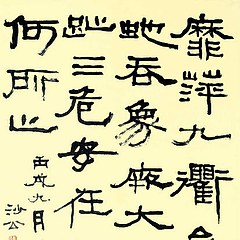 靡萍九衢
蛇吞象厥大
趾三危安在
何所止
丙戌九月
沙公